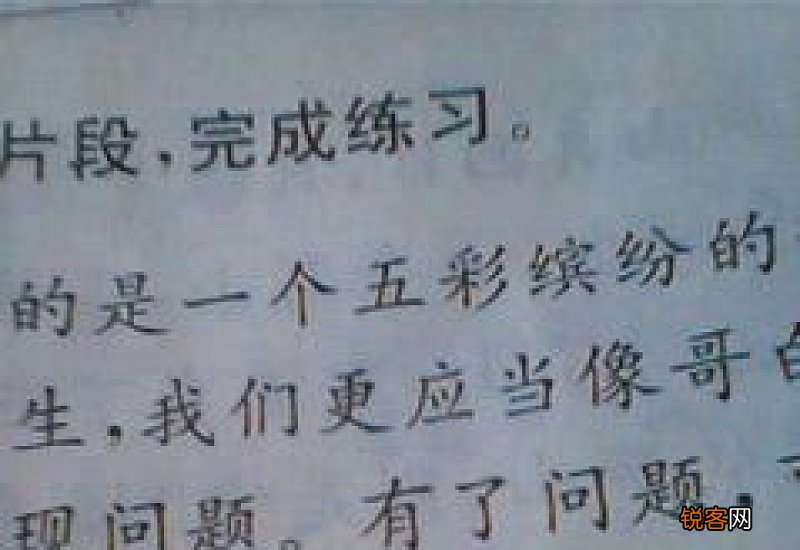 片段，完成练习。
的是一个五彩缤纷的
生，我们更应当像哥
现问题。有了问题，
锐客网